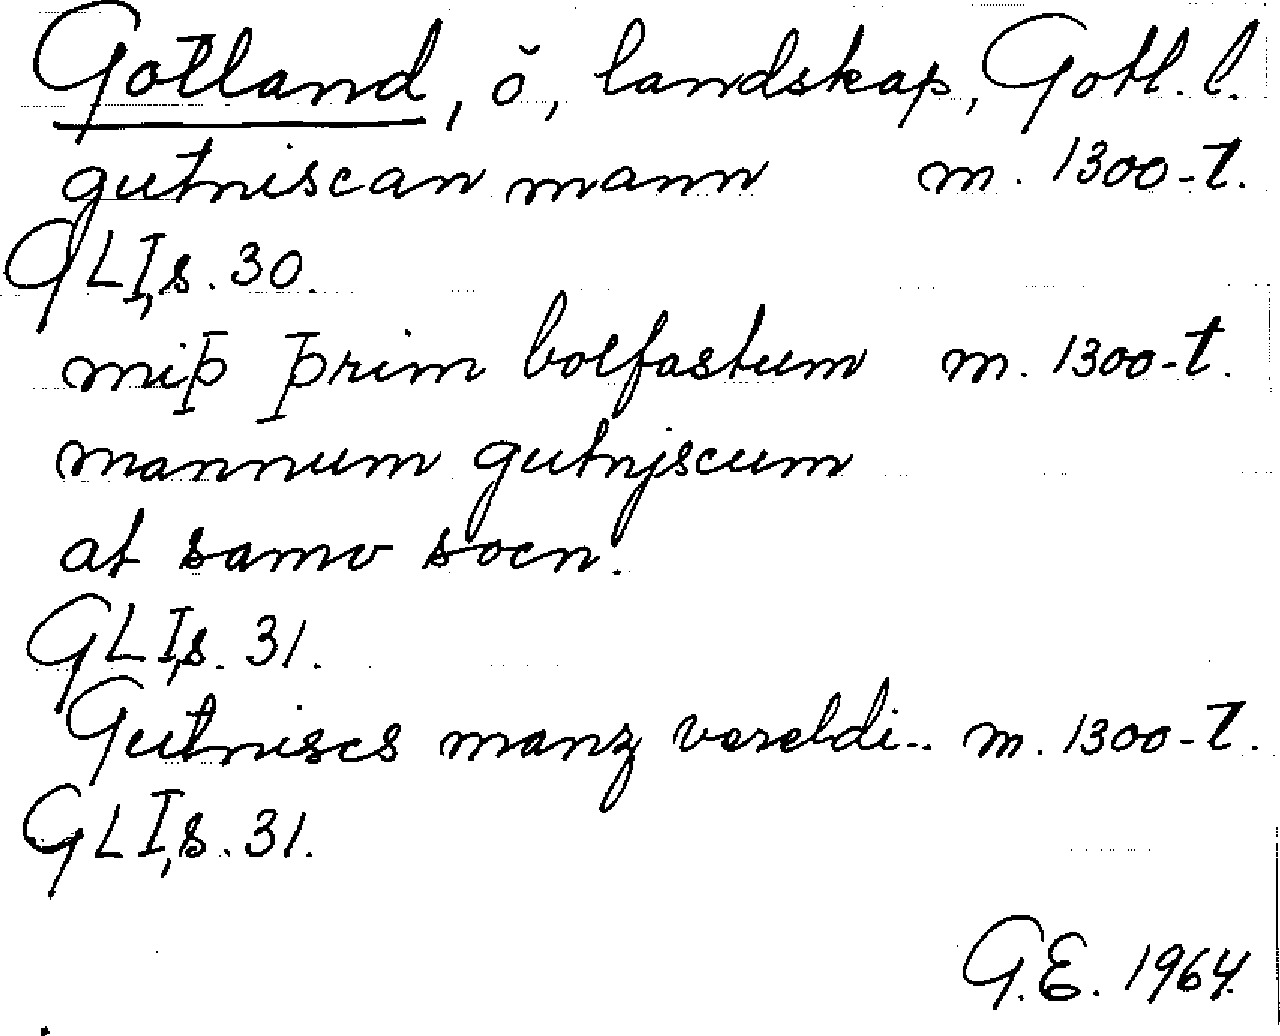 Gotland, ö, landskap, Gotl. l.
gutniscan mann m. 1300-t.
GLI, s. 30.
miþ þrim bolfastum m. 1300-t.
mannum gutniscum
at samu socn.
GLI, s. 31.
Gutniscs manz vereldi.. m. 1300-t.
GLI, s. 31.
G.E. 1964.